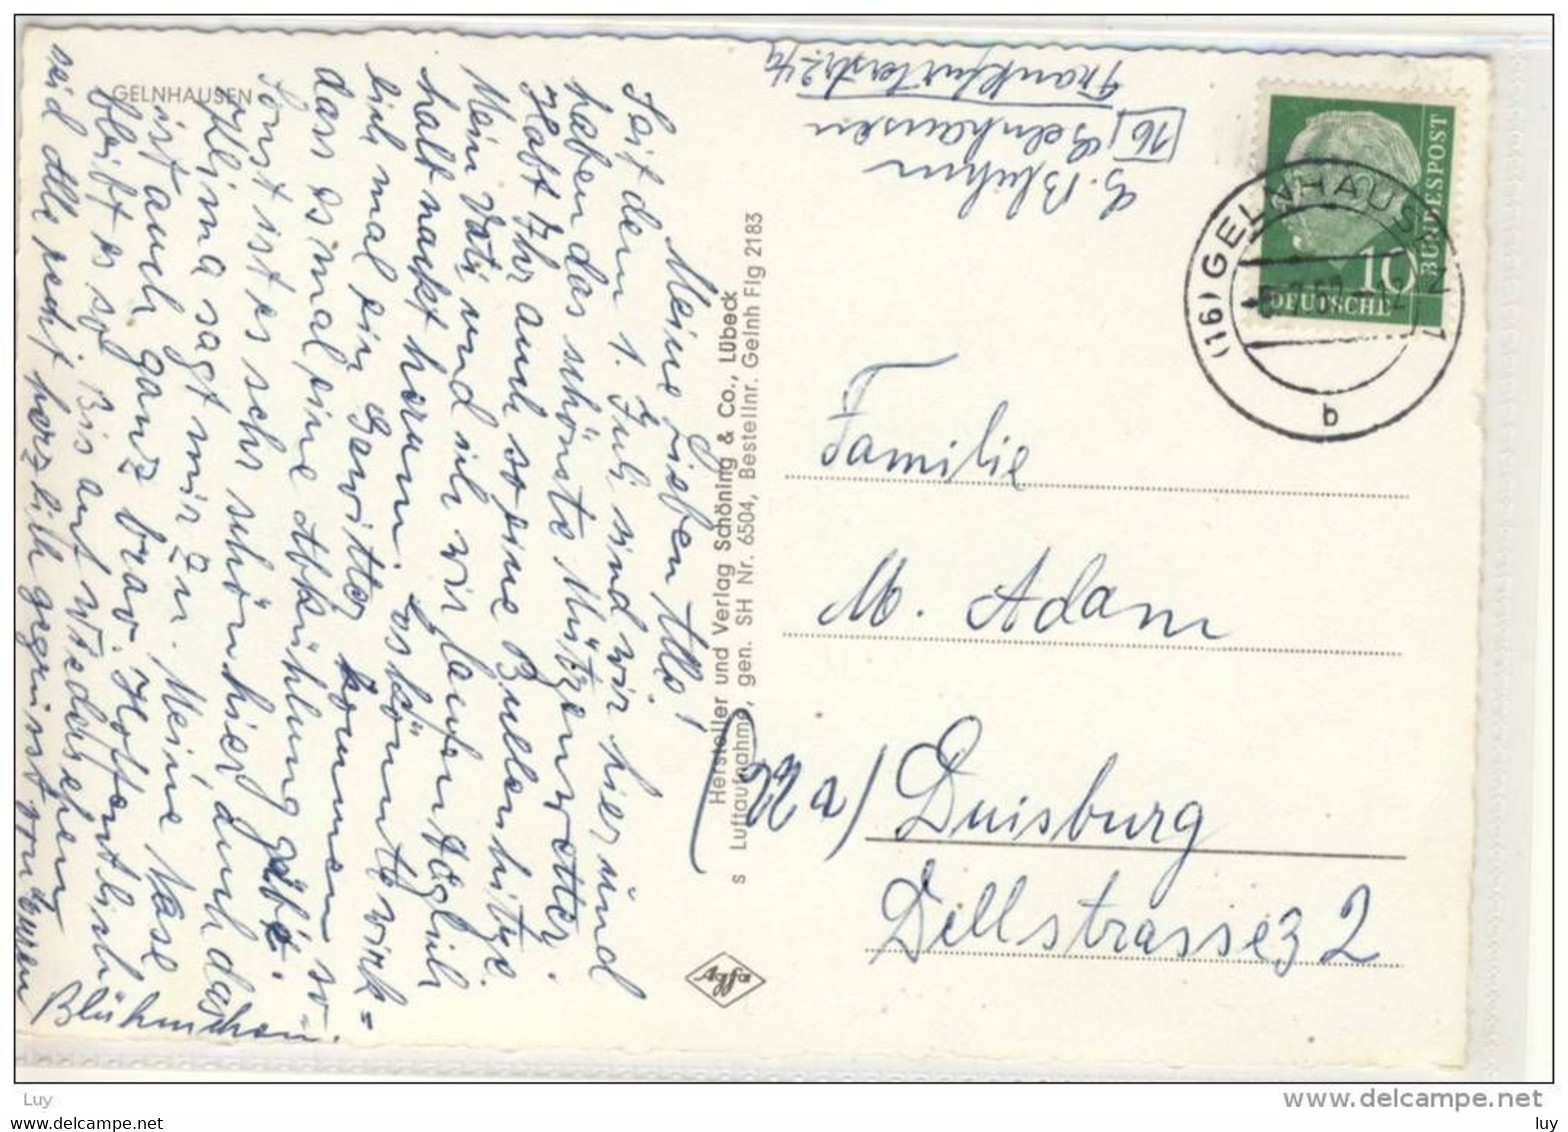 GELNHAUSEN
Meine lieben Alle!
Seit dem 1. Juli sind wir hier und
haben das schönste Mützenwetter.
Habt Ihr auch so eine Bullenhitze.
Mein Vati und ich wir laufen täglich
halt nackt herum. Es könnte wirk=
lich mal ein Gewitter kommen so
dass es mal eine Abkühlung gibt.
Sonst ist es sehr schön hier auch das
Klima sagt mir zu. Meine Nase
ist auch ganz brav. Hoffentlich
bleibt es so. Bis auf Wiedersehen
seid alle recht herzlich gegrüsst von Euren
Blühmchen.
Hersteller und Verlag Schöning & Co., Lübeck
s Luftaufnahme, gen. SH Nr. 6504, Bestellnr. Gelnh Flg 2183
Agfa
G. Blühm
16) Gelnhausen
Frankfurterstr. 24
DEUTSCHE BUNDESPOST
10
(16) GELNHAUSEN 1
b
Familie
M. Adam
(22a) Duisburg
Dellstrasse 32
Luy
www.delcampe.net
luy